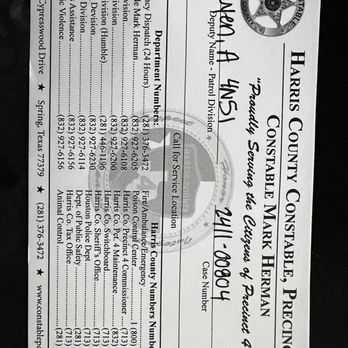 HARRIS COUNTY CONSTABLE, PRECIN
CONSTABLE MARK HERMAN
"Proudly Serving the Citizens of Precinct 4
A 4N51 2411-00904
Deputy Name - Patrol Division Case Number
Call for Service Location
Department Numbers:
cy Dispatch (24 Hours) (281) 376-3472
le Mark Herman (832) 927-6205
ivision (832) 927-6108
Division (832) 927-6200
vision (Humble) (281) 446-1196
Division (832) 927-6230
Division (832) 927-6114
Assistance (832) 927-6156
ic Violence (832) 927-6156
Harris County Numbers Numb
Fire/Ambulance/Emergency
Poison Control Center 1 (800)
Harris Co. Precinct 4 Commissioner (713)
Harris Co. Pct. 4 Maintenance (832)
Harris Co. Switchboard (713)
Harris Co. Sheriff's Office (713)
Houston Police Dept (713)
Dept. of Public Safety (281)
Harris Co. Tax Office (713)
Animal Control (281)
ypresswood Drive ★ Spring, Texas 77379 ★ (281) 376-3472 ★ www.constablep